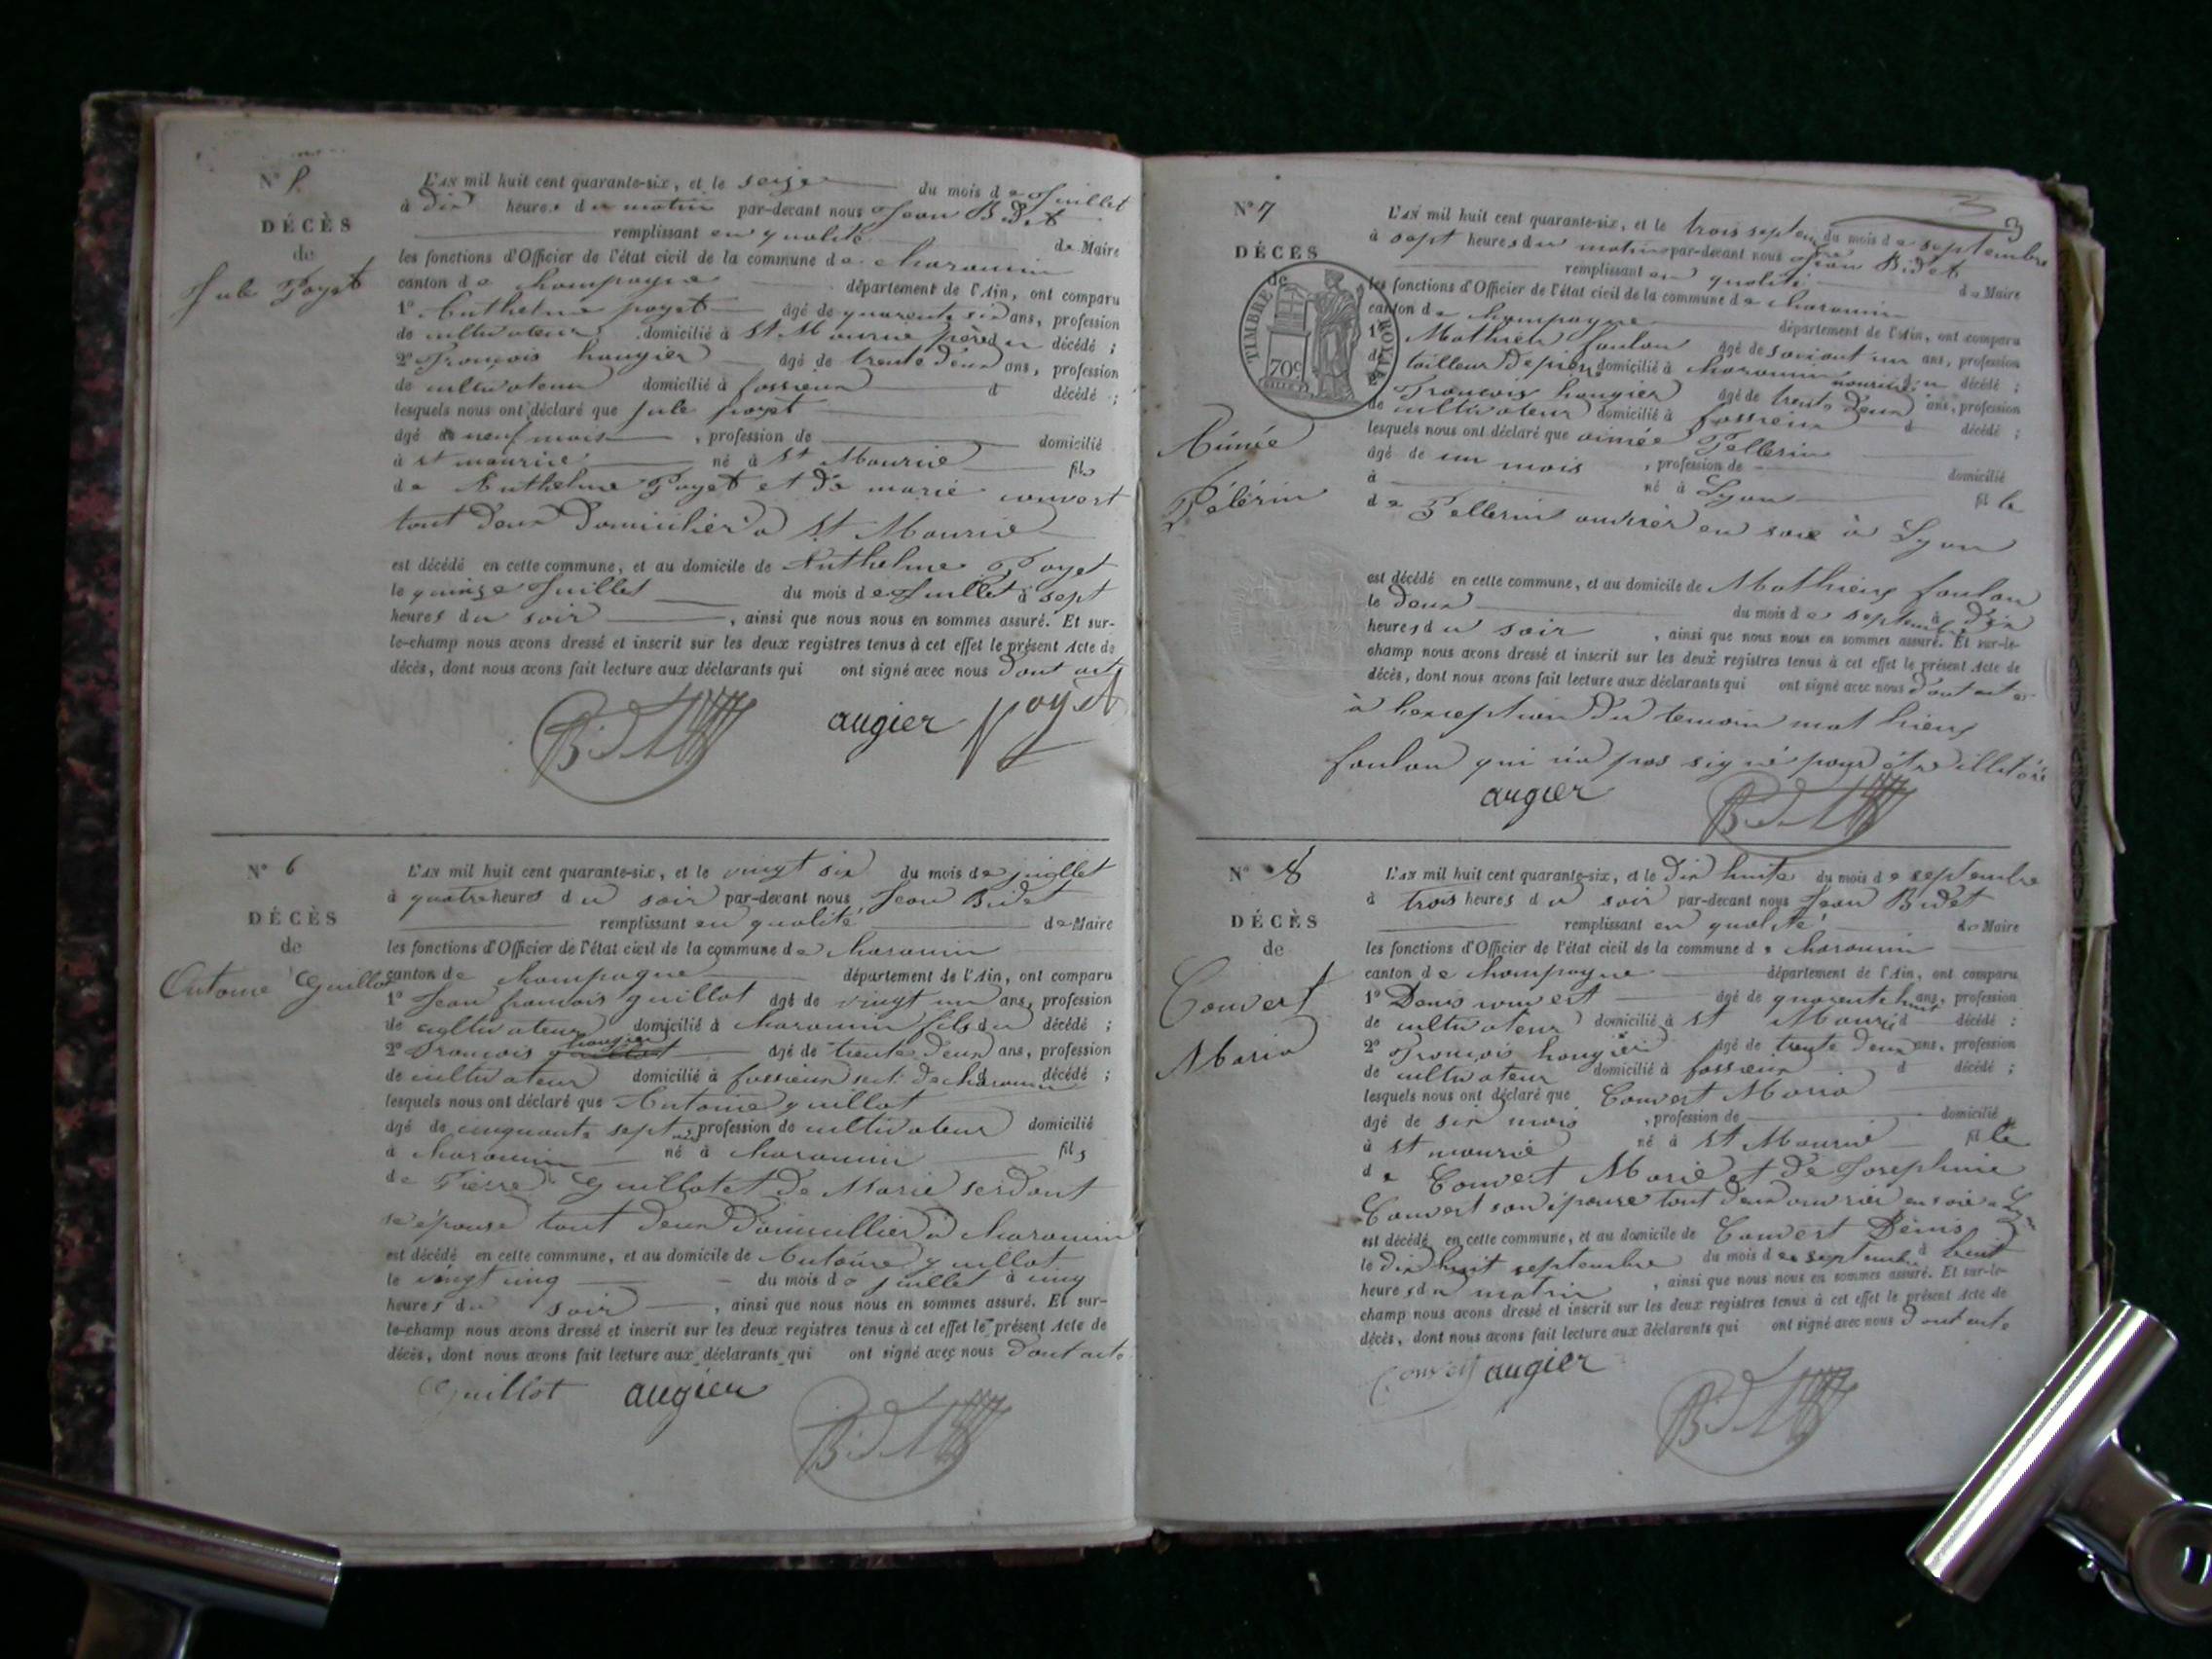 N° 5
DÉCÈS
de
Jule Poyet
L'AN mil huit cent quarante-six, et le seize du mois de Juillet
à dix heures du matin par-devant nous Jean Bidet
remplissant en qualité de Maire
les fonctions d'Officier de l'état civil de la commune de charancin
canton de champagne département de l'Ain, ont comparu
1° Anthelme poyet âgé de quarante six ans, profession
de cultivateur domicilié à St Mourice père du décédé ;
2° François hougier âgé de trente deux ans, profession
de cultivateur domicilié à fossieux d décédé ;
lesquels nous ont déclaré que jule poyet
âgé de neuf mois , profession de domicilié
à st mourice né à St Mourice fils
de Anthelme Poyet et de marie convert
tout deux Domicilier a St Mourice
est décédé en cette commune, et au domicile de Anthelme Poyet
le quinze Juillet du mois de Juillet à sept
heures du soir , ainsi que nous nous en sommes assuré. Et sur-
le-champ nous avons dressé et inscrit sur les deux registres tenus à cet effet le présent Acte de
décès, dont nous avons fait lecture aux déclarants qui ont signé avec nous dont acte
Bidet augier Poyet
N° 6
DÉCÈS
de
Antoine Guillot
L'AN mil huit cent quarante-six, et le vingt six du mois de juillet
à quatre heures du soir par-devant nous Jean Bidet
remplissant en qualité de Maire
les fonctions d'Officier de l'état civil de la commune de charancin
canton de champagne département de l'Ain, ont comparu
1° Jean francois guillot âgé de vingt un ans, profession
de cultivateur domicilié à charancin fils du décédé ;
2° François hougier âgé de trente deux ans, profession
de cultivateur domicilié à fossieux sect. de charancin d décédé ;
lesquels nous ont déclaré que Antoine guillot
âgé de cinquante sept ans, profession de cultivateur domicilié
à charancin né à charancin fils
de Pierre Guillot et de Marie serdont
se épouse tout deux Domicillier à charancin
est décédé en cette commune, et au domicile de Antoine guillot
le vingt cinq du mois de juillet à cinq
heures du soir , ainsi que nous nous en sommes assuré. Et sur-
le-champ nous avons dressé et inscrit sur les deux registres tenus à cet effet le présent Acte de
décès, dont nous avons fait lecture aux déclarants qui ont signé avec nous dont acte
Guillot augier Bidet
3
N° 7
DÉCÈS
de
TIMBRE ROYAL
70c
Aimée
Pélérin
L'AN mil huit cent quarante-six, et le trois septembre du mois de septembre
à sept heures du matin par-devant nous Jean Bidet
remplissant en qualité de Maire
les fonctions d'Officier de l'état civil de la commune de charancin
canton de champagne département de l'Ain, ont comparu
1° Mathieu foulon âgé de soixant un ans, profession
de tailleur de pierre domicilié à charancin d décédé ;
2° François hougier âgé de trente deux ans, profession
de cultivateur domicilié à fossieux d décédé ;
lesquels nous ont déclaré que aimée Pellerin
âgé de un mois , profession de domicilié
à né à Lyon fil le
de Pellerin ouvrier en soie à Lyon
est décédé en cette commune, et au domicile de Mathieu foulon
le deux du mois de septembre à dix
heures du soir , ainsi que nous nous en sommes assuré. Et sur-le-
champ nous avons dressé et inscrit sur les deux registres tenus à cet effet le présent Acte de
décès, dont nous avons fait lecture aux déclarants qui ont signé avec nous dont acte
à l'exception du temoin mathieu
foulon qui n'a pas signé pour être illitéré
augier Bidet
N° 8
DÉCÈS
de
Convert
Maria
L'AN mil huit cent quarante-six, et le dix huite du mois de septembre
à trois heures du soir par-devant nous Jean Bidet
remplissant en qualité de Maire
les fonctions d'Officier de l'état civil de la commune de charancin
canton de champagne département de l'Ain, ont comparu
1° Denis convert âgé de quarente huit ans, profession
de cultivateur domicilié à St Mourice d décédé ;
2° François hougier âgé de trente deux ans, profession
de cultivateur domicilié à fossieux d décédé ;
lesquels nous ont déclaré que Convert Maria
âgé de six mois , profession de domicilié
à st mourice né à St Mourice fil le
de Convert Marie et de Josephine
Convert son épouse tout deux ouvrier en soie a Lyon
est décédé en cette commune, et au domicile de Convert Denis
le dix huit septembre du mois de septembre à huit
heures du matin , ainsi que nous nous en sommes assuré. Et sur-le-
champ nous avons dressé et inscrit sur les deux registres tenus à cet effet le présent Acte de
décès, dont nous avons fait lecture aux déclarants qui ont signé avec nous dont acte
Convert augier Bidet